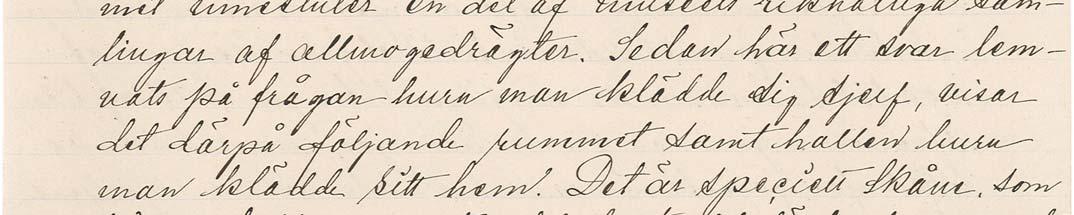 met en del af museets rikhaltiga sam-
lingar af allmogedrägter. Sedan här ett svar lem-
nats på frågan huru man klädde sig sjelf, visar
det därpå följande rummet samt hallen huru
man klädde sitt hem. Det är speciellt Skåne, som